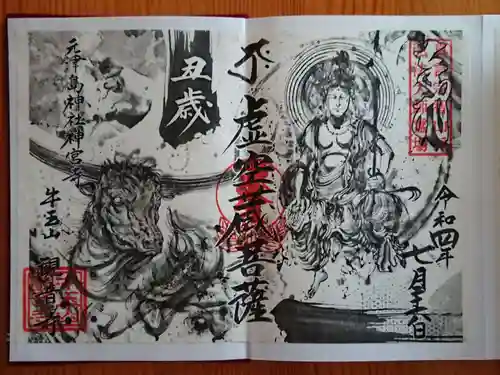 令和四年
七月十六日
虚空蔵菩薩
丑歳
元津島神社神宮寺
牛玉山
観音寺